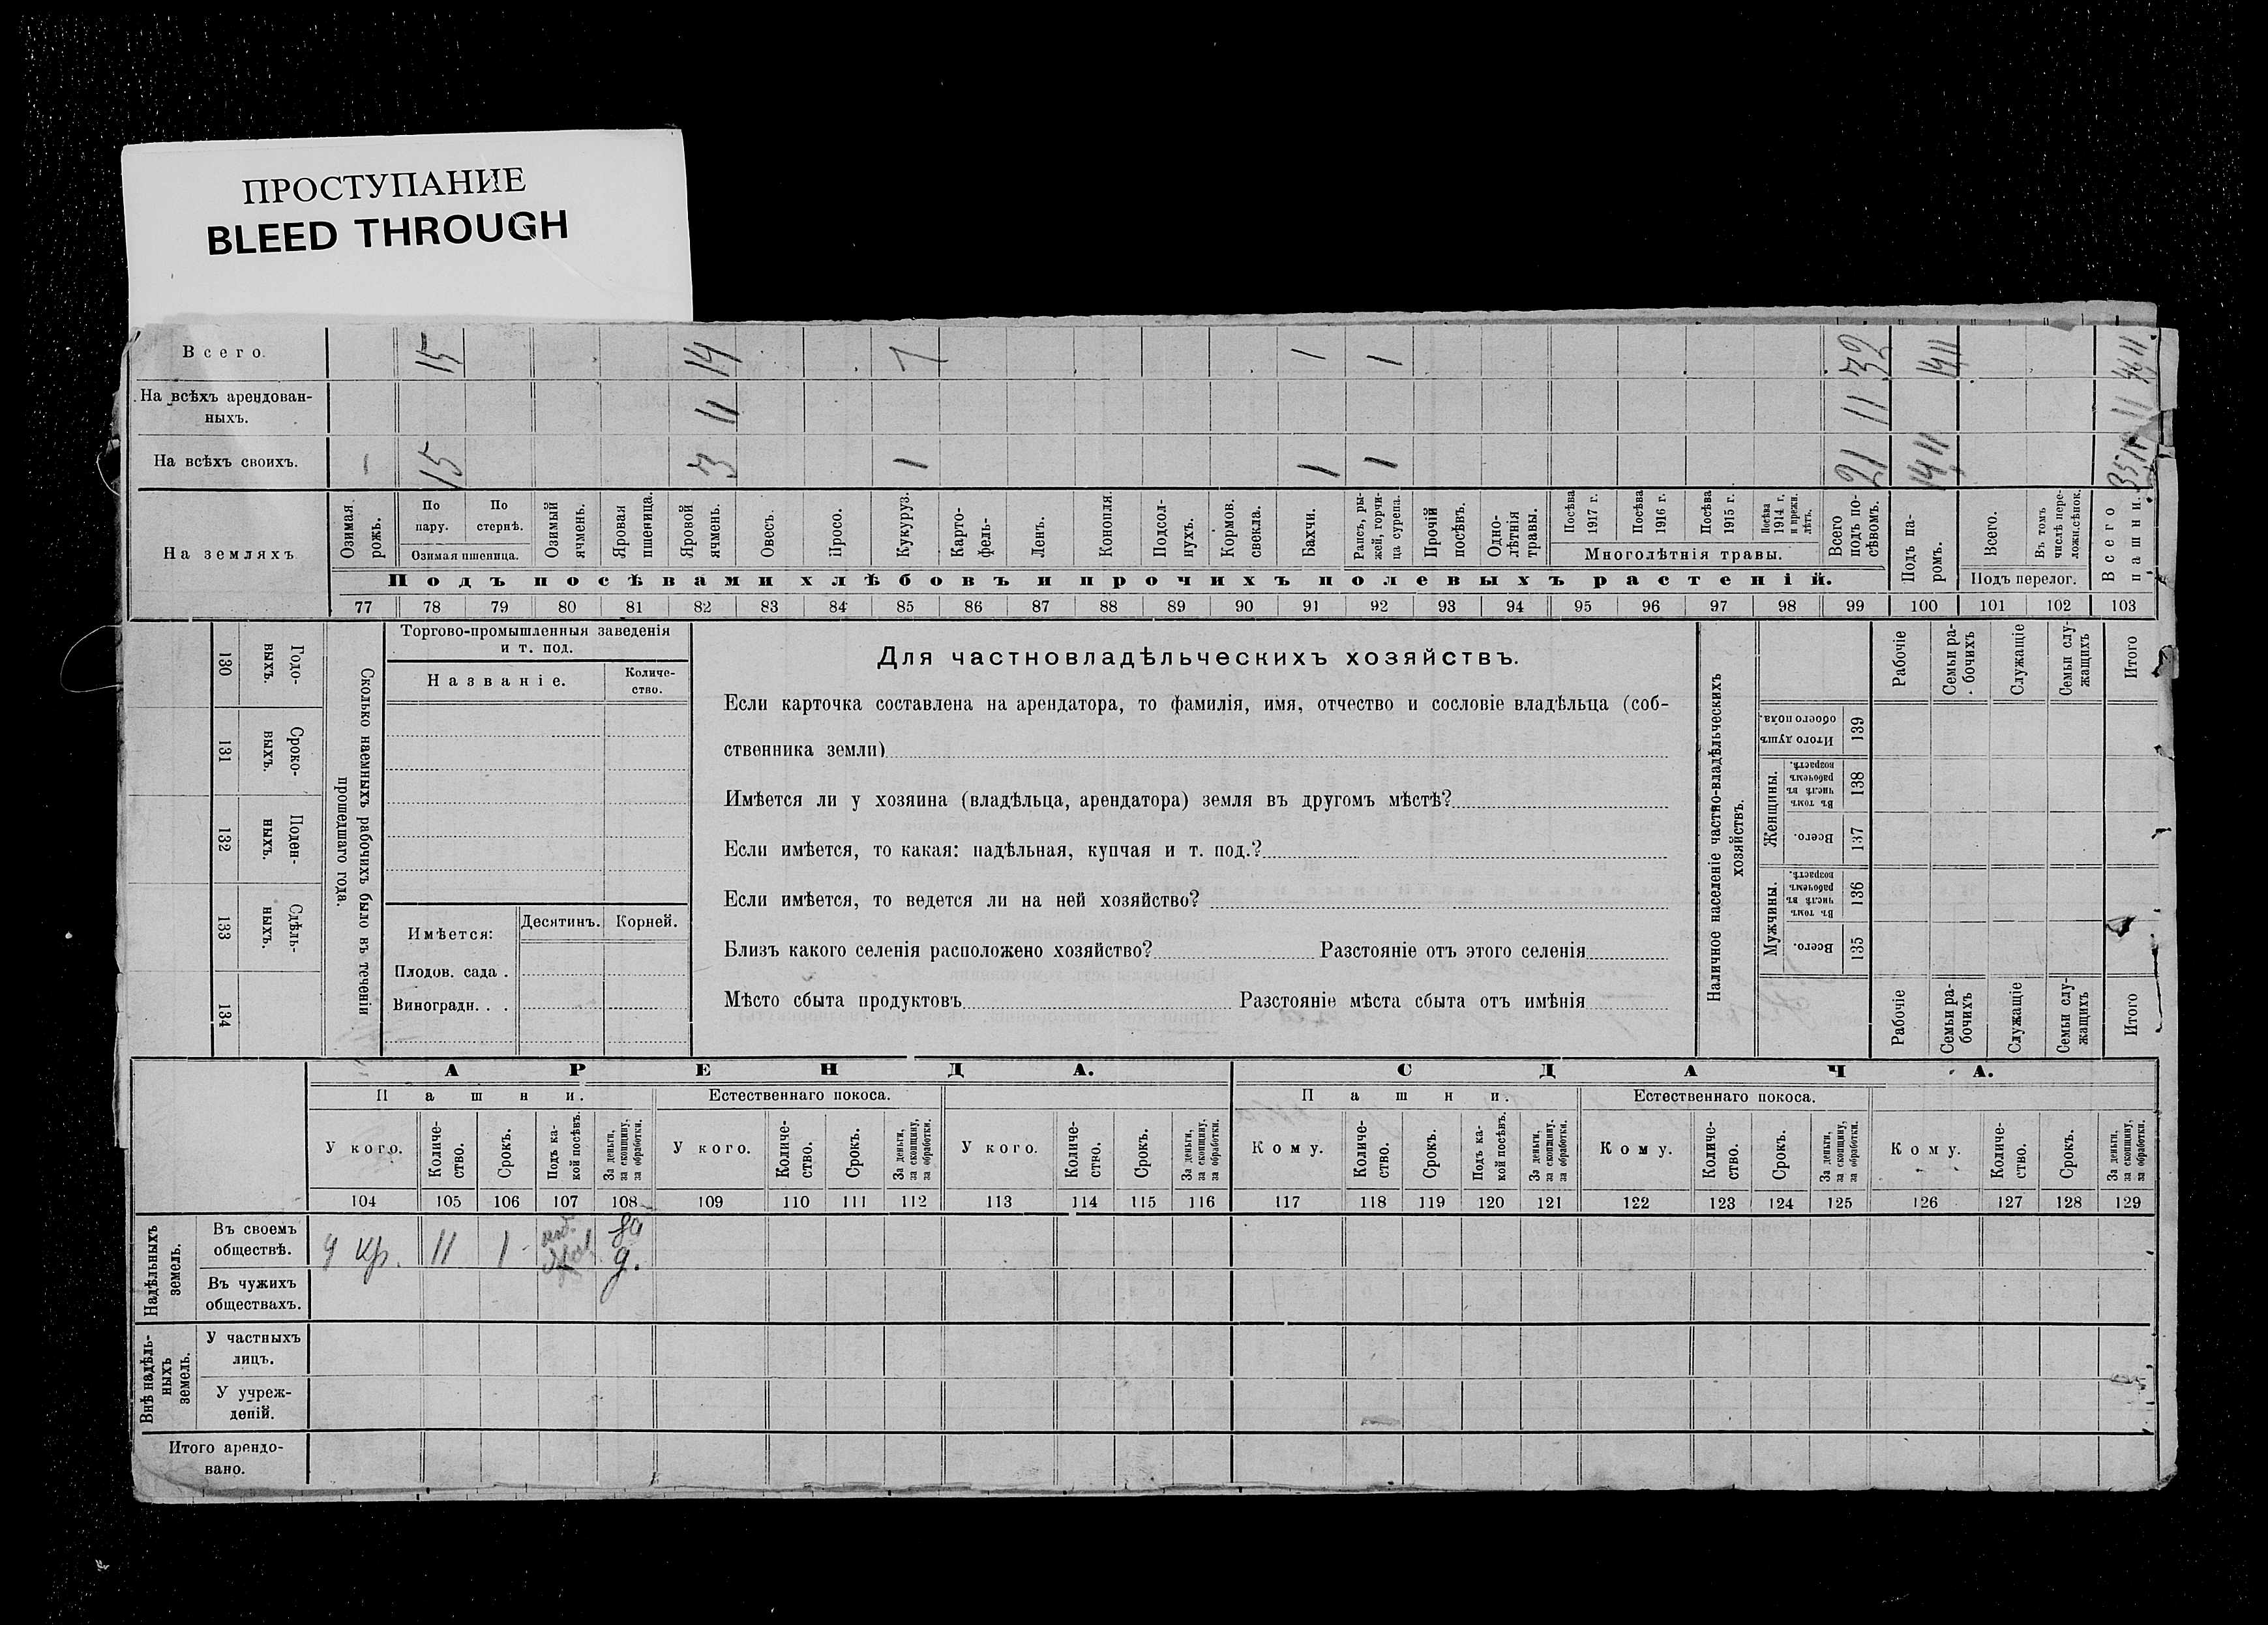 ПРОСТУПАНИЕ
BLEED THROUGH
Всего. 15 14 7 1 1 32 14,11 46,11
На всѣхъ арендован-
ныхъ. 11 11 11
На всѣхъ своихъ. — 15 3 1 1 1 21 14,11 35,11
На земляхъ
Озимая рожь.
По пару.
По стернѣ.
Озимая пшеница.
Озимый ячмень.
Яровая пшеница.
Яровой ячмень.
Овесъ.
Просо.
Кукуруз.
Карто-
фель-
Ленъ.
Конопля.
Подсол-
нухъ.
Кормов.
свекла.
Бахчи.
Рапсъ, ры-
жей, горчи-
ца сурепа.
Прочій
посѣвъ.
Одно-
лѣтнія
травы.
Посѣва
1917 г.
Посѣва
1916 г.
Посѣва
1915 г.
Посѣва
1914 г.
и прежн.
лѣтъ.
Многолѣтнія травы.
Всего
подъ по-
сѣвомъ.
Подъ па-
ромъ.
Всего.
Въ томъ
числѣ пере-
ложн.сѣнок.
Подъ перелог.
Всего
пашни.
Подъ посѣвами хлѣбовъ и прочихъ полевыхъ растеній.
77 78 79 80 81 82 83 84 85 86 87 88 89 90 91 92 93 94 95 96 97 98 99 100 101 102 103
130 Годо-
выхъ.
131 Сроко-
выхъ.
132 Поден-
ныхъ.
133 Сдѣль-
ныхъ.
134
Сколько наемныхъ рабочихъ было въ теченіи
прошедшаго года.
Торгово-промышленныя заведенія
и т. под.
Названіе.
Количе-
ство.
Имѣется:
Десятинъ.
Корней.
Плодов. сада .
Виноградн. . .
Для частновладѣльческихъ хозяйствъ.
Если карточка составлена на арендатора, то фамилія, имя, отчество и сословіе владѣльца (соб-
ственника земли)
Имѣется ли у хозяина (владѣльца, арендатора) земля въ другомъ мѣстѣ?
Если имѣется, то какая: надѣльная, купчая и т. под.?
Если имѣется, то ведется ли на ней хозяйство?
Близъ какого селенія расположено хозяйство? Разстояніе отъ этого селенія
Мѣсто сбыта продуктовъ Разстояніе мѣста сбыта отъ имѣнія
Наличное населеніе частно-владѣльческихъ
хозяйствъ.
Рабочіе
Семьи ра-
бочихъ
Служащіе
Семьи слу-
жащихъ
Итого
Итого душъ
обоего пола.
139
Женщины.
Въ томъ
числѣ въ
рабочемъ
возрастѣ.
138
Всего.
137
Мужчины.
Въ томъ
числѣ въ
рабочемъ
возрастѣ.
136
Всего.
135
Рабочіе
Семьи ра-
бочихъ
Служащіе
Семьи слу-
жащихъ
Итого
АРЕНДА. СДАЧА.
Пашни. Естественнаго покоса. Пашни. Естественнаго покоса.
У кого.
Количе-
ство.
Срокъ.
Подъ ка-
кой посѣвъ.
За деньги,
за скопщину,
за обработки.
У кого.
Количе-
ство.
Срокъ.
За деньги,
за скопщину,
за обработки.
У кого.
Количе-
ство.
Срокъ.
За деньги,
за скопщину,
за обработки.
Кому.
Количе-
ство.
Срокъ.
Подъ ка-
кой посѣвъ.
За деньги,
за скопщину,
за обработки.
Кому.
Количе-
ство.
Срокъ.
За деньги,
за скопщину,
за обработки.
Кому.
Количе-
ство.
Срокъ.
За деньги,
за скопщину,
за обработки.
104 105 106 107 108 109 110 111 112 113 114 115 116 117 118 119 120 121 122 123 124 125 126 127 128 129
Надѣльныхъ
земель.
Въ своемъ
обществѣ.
у кр. 11 1 за
д.
Въ чужихъ
обществахъ.
Внѣ надѣль-
ныхъ
земель.
У частныхъ
лицъ.
У учреж-
деній.
Итого арендо-
вано.